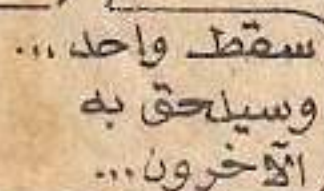 سقط واحد...
وسيلحق به
الآخرون...